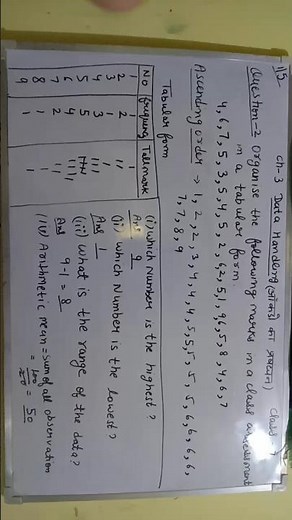 115
ch-3 Data Handling (आंकड़ो का प्रबंधन) class-7
Question-2 Organise the following marks in a class assessment
in a tabular form.
4, 6, 7, 5, 3, 5, 4, 5, 2, 6, 2, 5, 1, 9, 6, 5, 8, 4, 6, 7
Ascending order → 1, 2, 2, 3, 4, 4, 4, 5, 5, 5, 5, 5, 6, 6, 6, 6,
7, 7, 8, 9
Tabular form
No frequency Tallmark
1 1 1
2 2 11
3 1 1
4 3 111
5 5 ~~1111~~
6 4 1111
7 2 11
8 1 1
9 1 1
(i) which Number is the highest?
Ans 9
(ii) which Number is the lowest?
Ans 1
(iii) what is the range of the data?
Ans 9-1 = 8
(iv) Arithmetic mean = sum of all observation
= 100/20 = 50